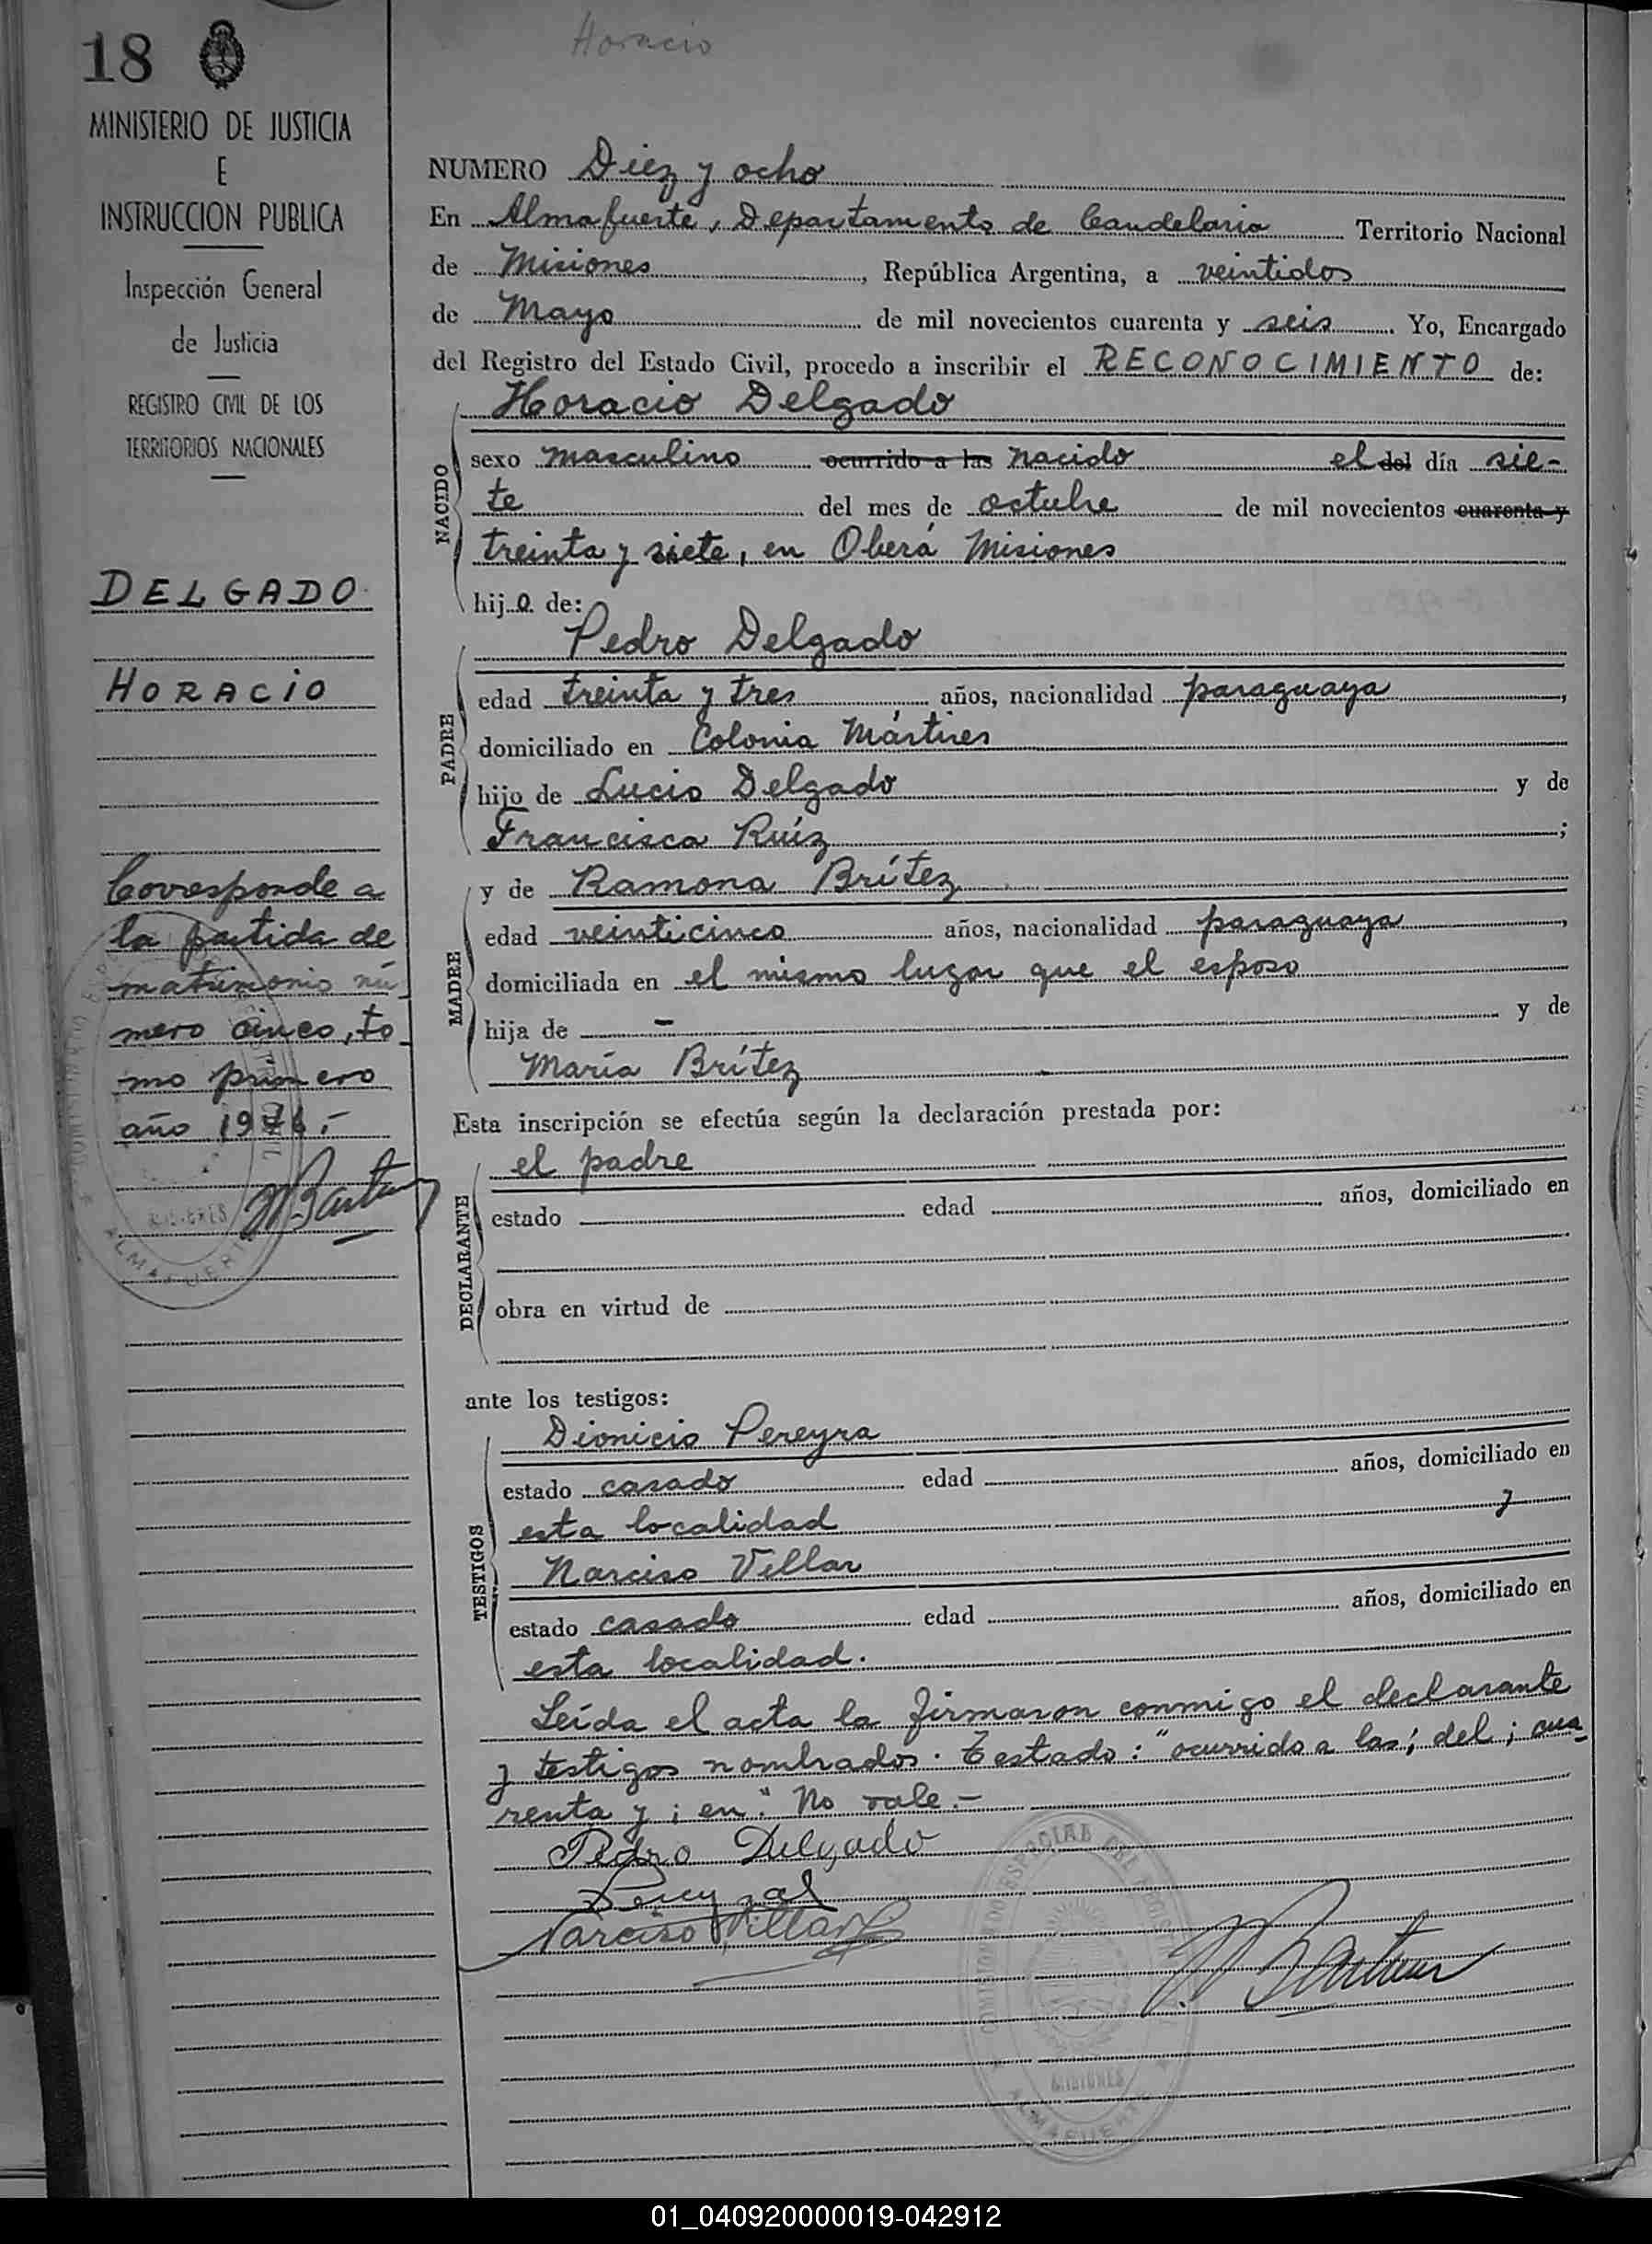 18
Horacio
MINISTERIO DE JUSTICIA
E
INSTRUCCION PUBLICA
Inspección General
de Justicia
REGISTRO CIVIL DE LOS
TERRITORIOS NACIONALES
DELGADO
HORACIO
Corresponde a
la partida de
matrimonio nú
mero cinco, to
mo primero
año 19
NUMERO Diez y ocho
En Almafuerte, Departamento de Candelaria Territorio Nacional
de Misiones, República Argentina, a veintidos
de Mayo de mil novecientos cuarenta y seis. Yo, Encargado
del Registro del Estado Civil, procedo a inscribir el RECONOCIMIENTO de:
Horacio Delgado
NACIDO
sexo masculino ocurrido a las nacido el del día sie-
te del mes de octubre de mil novecientos cuarenta y
treinta y siete, en Oberá Misiones
hijo de:
Pedro Delgado
PADRE
edad treinta y tres años, nacionalidad paraguaya,
domiciliado en Colonia Mártires
hijo de Lucio Delgado y de
Francisca Ruíz;
y de Ramona Brítez
MADRE
edad veinticinco años, nacionalidad paraguaya,
domiciliada en el mismo lugar que el esposo
hija de - y de
María Brítez
Esta inscripción se efectúa según la declaración prestada por:
el padre
DECLARANTE
estado edad años, domiciliado en
obra en virtud de
ante los testigos:
Dionicio Pereyra
TESTIGOS
estado casado edad años, domiciliado en
esta localidad y
Narciso Villar
estado casado edad años, domiciliado en
esta localidad.
Leída el acta la firmaron conmigo el declarante
y testigos nombrados. Testado: "ocurrido a las; del; cua-
renta y; en". No vale.-
Pedro Delgado
Narciso Villar
MISIONES
ALMAFUERTE
01_040920000019-042912